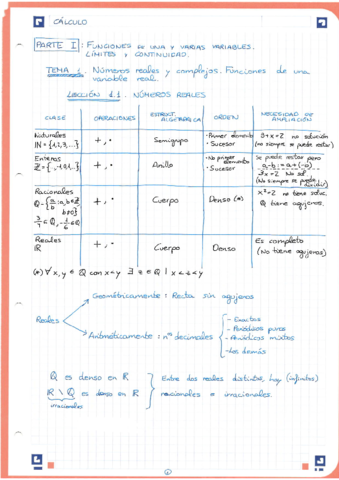 CÁLCULO
PARTE I: FUNCIONES DE UNA Y VARIAS VARIABLES.
LÍMITES Y CONTINUIDAD.
TEMA 1. Números reales y complejos. Funciones de una
variable real.
LECCIÓN 1.1. NÚMEROS REALES.
CLASE OPERACIONES ESTRUCT. ALGEBRAICA ORDEN NECESIDAD DE AMPLIACIÓN
Naturales
ℕ={1,2,3,...} +, · Semigrupo
· Primer elemento
· Sucesor
3+x=2 no solución
(no siempre se puede restar)
Enteros
ℤ={..,-1,0,1,..} +, · Anillo
· No primer elemento
· Sucesor
Se puede restar pero
a-b:=a+(-b)
3x=2 No sol
(No siempre se puede dividir)
Racionales
ℚ={a/b : a,b∈ℤ b≠0}
3/4∈ℚ, -1/6∈ℚ
+, · Cuerpo Denso (*)
x²=2 no tiene soluc.
ℚ tiene agujeros.
Reales
ℝ +, · Cuerpo Denso
Es completo
(No tiene agujeros)
(*) ∀x,y∈ℚ con x<y ∃ z∈ℚ | x<z<y
Geométricamente: Recta sin agujeros
Reales
Aritméticamente: nº decimales
- Exactos
- Periódicos puros
- Periódicos mixtos
- Los demás
ℚ es denso en ℝ
ℝ\ℚ es denso en ℝ
irracionales
Entre dos reales distintos, hay (infinitos)
racionales e irracionales.